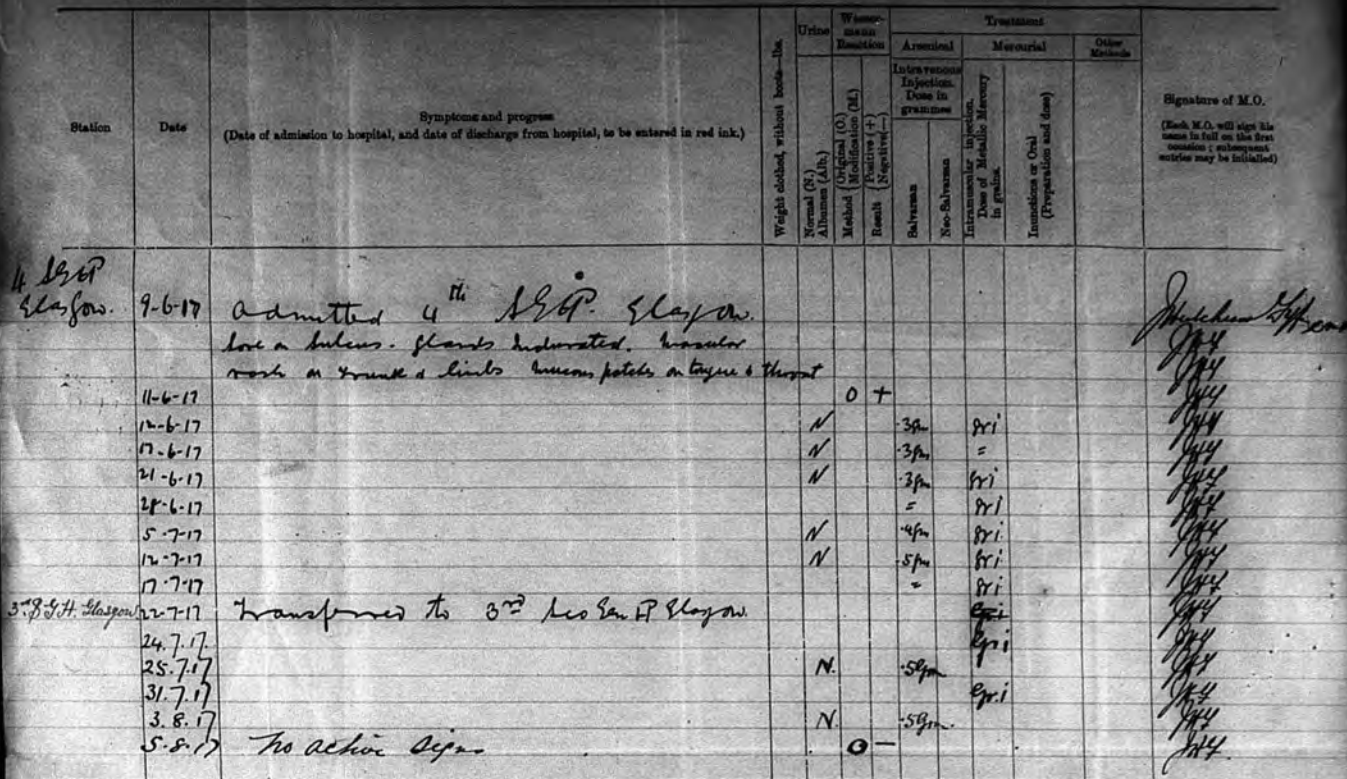 Station
Date
Symptoms and progress
(Date of admission to hospital, and date of discharge from hospital, to be entered in red ink.)
Weight clothed, without boots—lbs.
Urine
Normal (N.)
Albumen (Alb.)
Wassermann Reaction
Method { Original (O.) Modification (M.)
Result { Positive (+) Negative (—)
Treatment
Arsenical
Intravenous Injection. Dose in grammes
Salvarsan
Neo-Salvarsan
Mercurial
Intramuscular injection. Dose of Metallic Mercury in grains.
Inunctions or Oral (Preparation and dose)
Other Methods
Signature of M.O.
(Each M.O. will sign his name in full on the first occasion; subsequent entries may be initialled)
4 SGH
Glasgow. 9-6-17 Admitted 4th SGH. Glasgow.
Sore on Sulcus. Glands Indurated. Macular
rash on trunk & limbs mucous patches on tongue & throat
11-6-17 O +
12-6-17 N .3gm gr i
17-6-17 N .3gm =
21-6-17 N .3gm gr i
28-6-17 = gr i
5-7-17 N .4gm gr i
12-7-17 N .5gm gr i
17-7-17 = gr i
3rd S.G.H. Glasgow 22-7-17 Transferred to 3rd Sco Gen H Glasgow.
24.7.17. Gr i
25.7.17 N. .5Gm
31.7.17 Gr. i
3.8.17 N. .5Gm.
5.8.17 No active signs O —